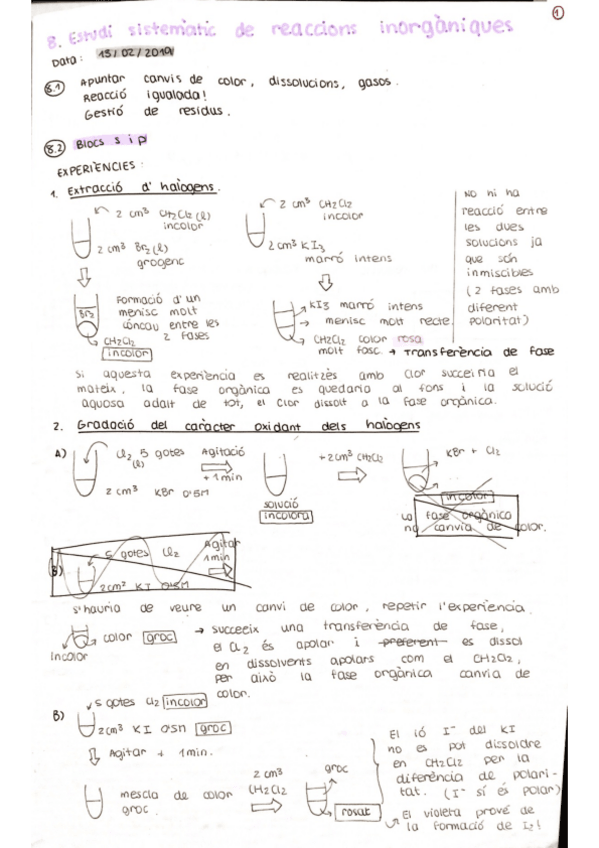 1
8. Estudi sistemàtic de reaccions inorgàniques
Data: 15/02/2019
8.1 Apuntar canvis de color, dissolucions, gasos.
Reacció igualada!
Gestió de residus.
8.2 Blocs s i p
EXPERIÈNCIES:
1. Extracció d' halògens.
2 cm³ CH2Cl2 (l)
incolor
2 cm³ Br2 (l)
grogenc
Formació d'un
menisc molt
còncau entre les
2 fases
Br2
CH2Cl2
incolor
2 cm³ CH2Cl2
incolor
2 cm³ KI3
marró intens
KI3 marró intens
menisc molt recte.
CH2Cl2 color rosa
molt fosc → Transferència de fase
NO hi ha
reacció entre
les dues
solucions ja
que són
inmiscibles
(2 fases amb
diferent
polaritat)
Si aquesta experiència es realitzés amb clor succeiria el
mateix, la fase orgànica es quedaria al fons i la solució
aquosa adalt de tot, el clor dissolt a la fase orgànica.
2. Gradació del caràcter oxidant dels halògens
A) Cl2 5 gotes
(l)
2 cm³ KBr 0'5M
Agitació
+ 1 min
solució
incolora
+2 cm³ CH2Cl2
KBr + Cl2
incolor
La fase orgànica
no canvia de color.
B) 5 gotes Cl2
2cm³ KI 0'5M
Agitar
1 min
s'hauria de veure un canvi de color, repetir l'experiència.
color groc
incolor
→ succeeix una transferència de fase,
el Cl2 és apolar i preferent es dissol
en dissolvents apolars com el CH2Cl2,
per això la fase orgànica canvia de
color.
B) 5 gotes Cl2 incolor
2cm³ KI 0'5N groc
Agitar + 1min.
mescla de color
groc.
2 cm³
CH2Cl2
groc
rosat
El ió I⁻ del KI
no es pot dissoldre
en CH2Cl2 per la
diferència de polari-
tat. (I⁻ sí és polar)
El violeta prové de
la formació de I2!